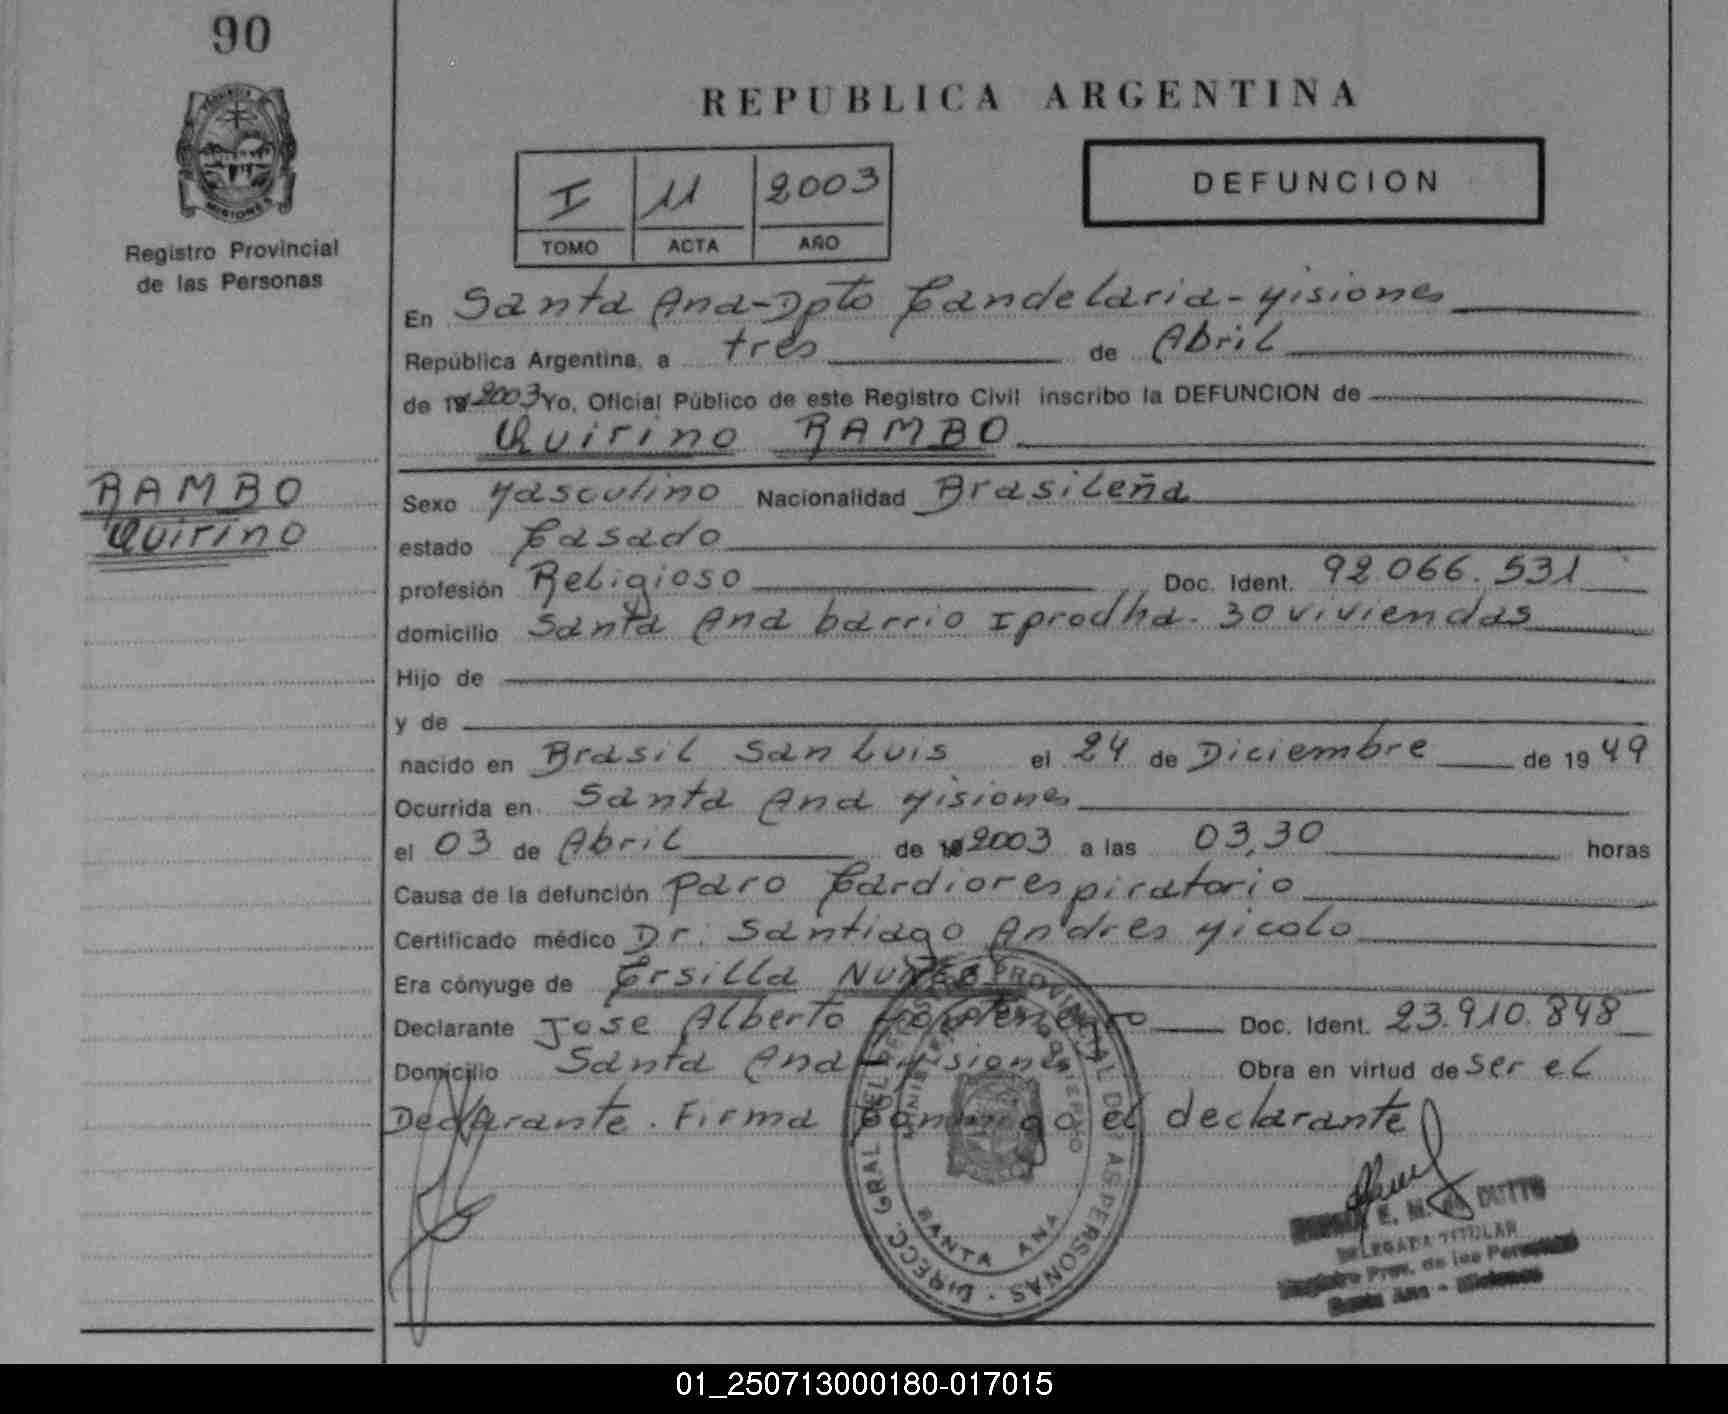 90
PROVINCIA
MISIONES
Registro Provincial
de las Personas
RAMBO
Quirino
REPUBLICA ARGENTINA
I 11 2003
TOMO ACTA AÑO
DEFUNCION
En Santa Ana-Dpto Candelaria-Misiones
República Argentina, a tres de Abril
de 19 2003 Yo, Oficial Público de este Registro Civil inscribo la DEFUNCION de
Quirino RAMBO
Sexo Masculino Nacionalidad Brasileña
estado Casado
profesión Religioso Doc. Ident. 92.066.531
domicilio Santa Ana barrio Iprodha. 30 viviendas
Hijo de
y de
nacido en Brasil San Luis el 24 de Diciembre de 1949
Ocurrida en Santa Ana Misiones
el 03 de Abril de 19 2003 a las 03,30 horas
Causa de la defunción Paro Cardiorespiratorio
Certificado médico Dr. Santiago Andres Nicolo
Era cónyuge de Ersilla Nuñes
Declarante Jose Alberto Doc. Ident. 23.910.848
Domicilio Santa Ana-Misiones Obra en virtud de ser el
Declarante. Firma Conmigo el declarante
DIRECC. GRAL DEL REGISTRO PROVINCIAL DE LAS PERSONAS
MINISTERIO DE GOBIERNO
SANTA ANA
E. M. DUTTO
DELEGADA TITULAR
Registro Prov. de las Personas
Santa Ana - Misiones
01_250713000180-017015